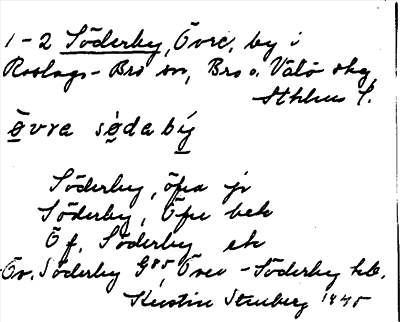 1-2 Söderby, Övre, by i
Roslags-Bro sn, Bro o. Vätö skg
Sthlms l.
övra södabý
Söderby, öfra jr
Söderby, Öfre bek
Öf. Söderby ek
Öv. Söderby G85, Övre-Söderby hb.
Kerstin Stenberg 1945